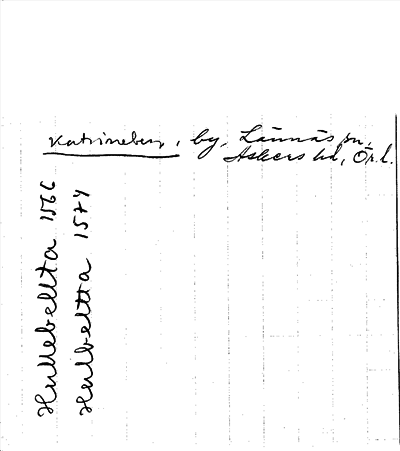 Katrineberg, by, Lännäs sn,
Askers hd, Ör.l.
Hullebellta 1566
Hulbeltta 1574